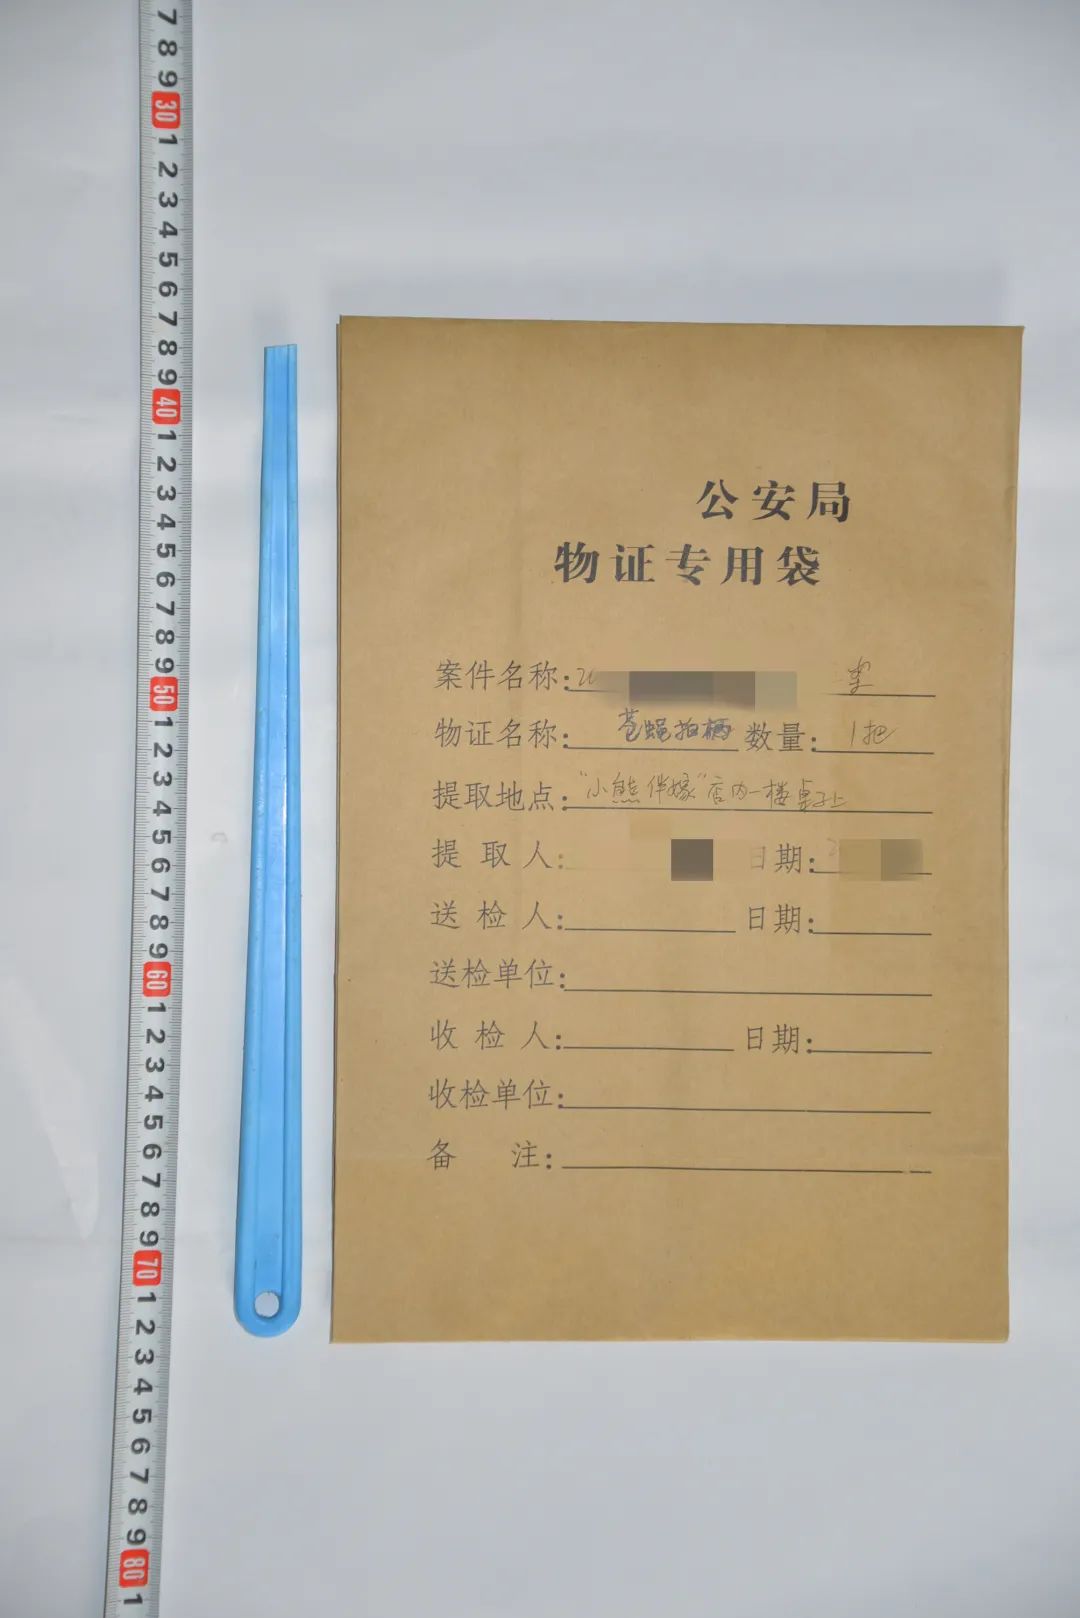 7
8
9
30
1
2
3
4
5
6
7
8
9
40
1
2
3
4
5
6
7
8
9
50
1
2
3
4
5
6
7
8
9
60
1
2
3
4
5
6
7
8
9
70
1
2
3
4
5
6
7
8
9
80
1
公安局
物证专用袋
案件名称: 案
物证名称: 苍蝇拍柄 数量: 1把
提取地点: "小熊伴嫁"店内一楼桌子上
提取人: 日期:
送检人: 日期:
送检单位:
收检人: 日期:
收检单位:
备注: